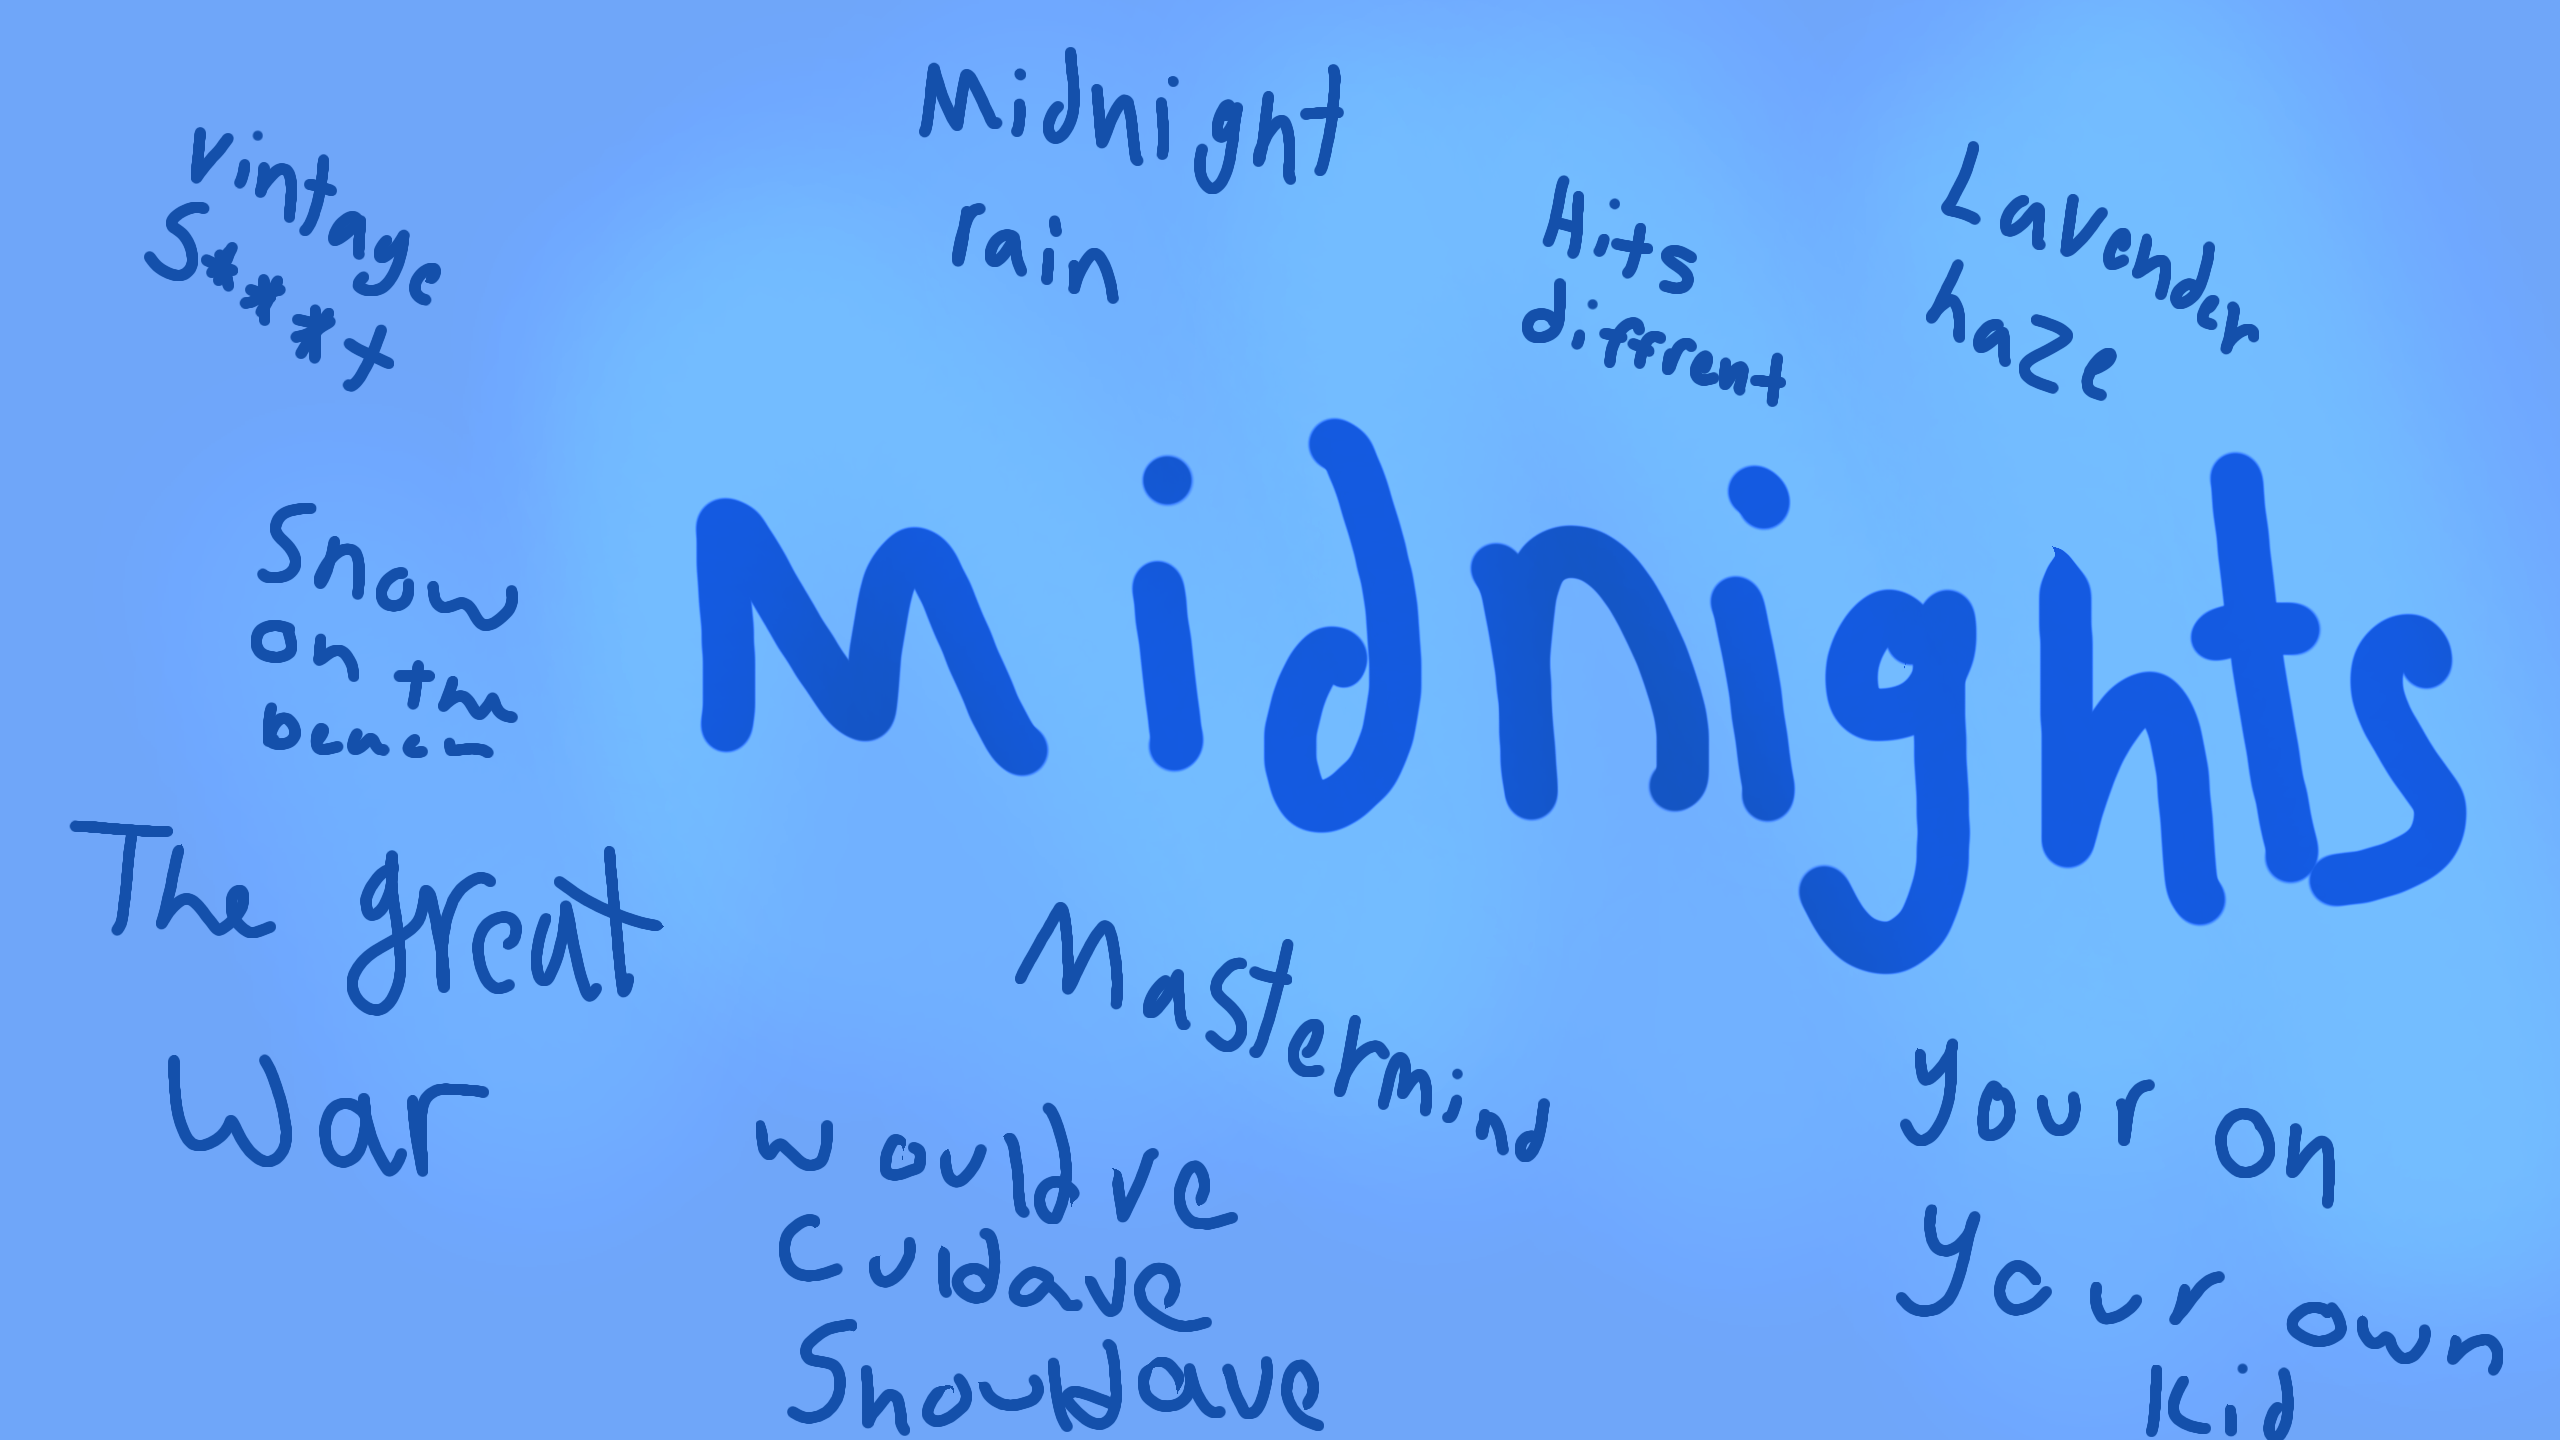 Vintage
S***t
Midnight
rain
Hits
diffrent
Lavender
haze
Midnights
Snow
on the
beach
The great
War
Mastermind
wouldve
Culdave
Shouldave
your on
your own
kid